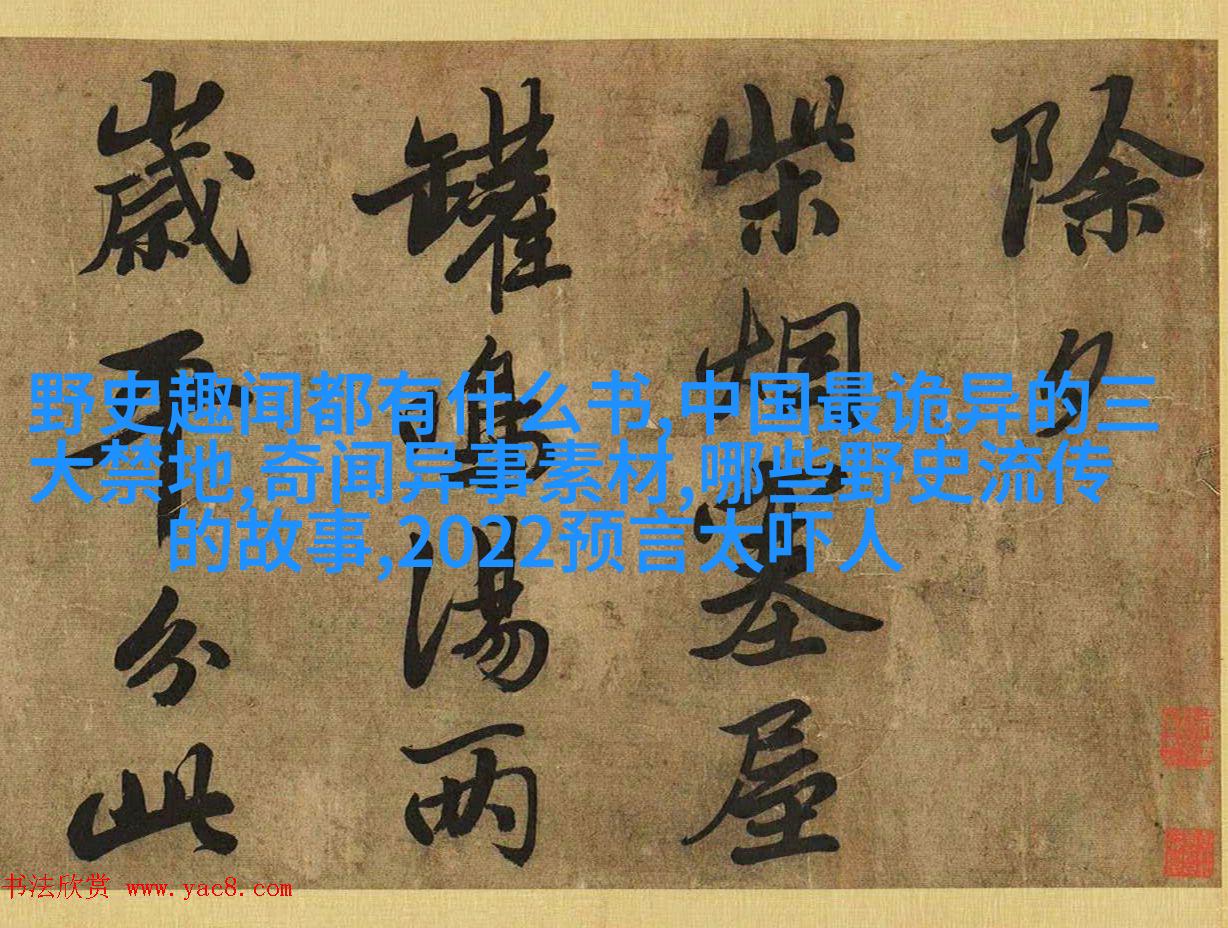 野史趣闻都有什么书,中国最诡异的三
大禁地,奇闻异事素材,哪些野史流传
的故事,2022预言太吓人
除夕
柴烟塞屋
罐鳴湯兩
歲平分此
书法欣赏 www.yac8.com